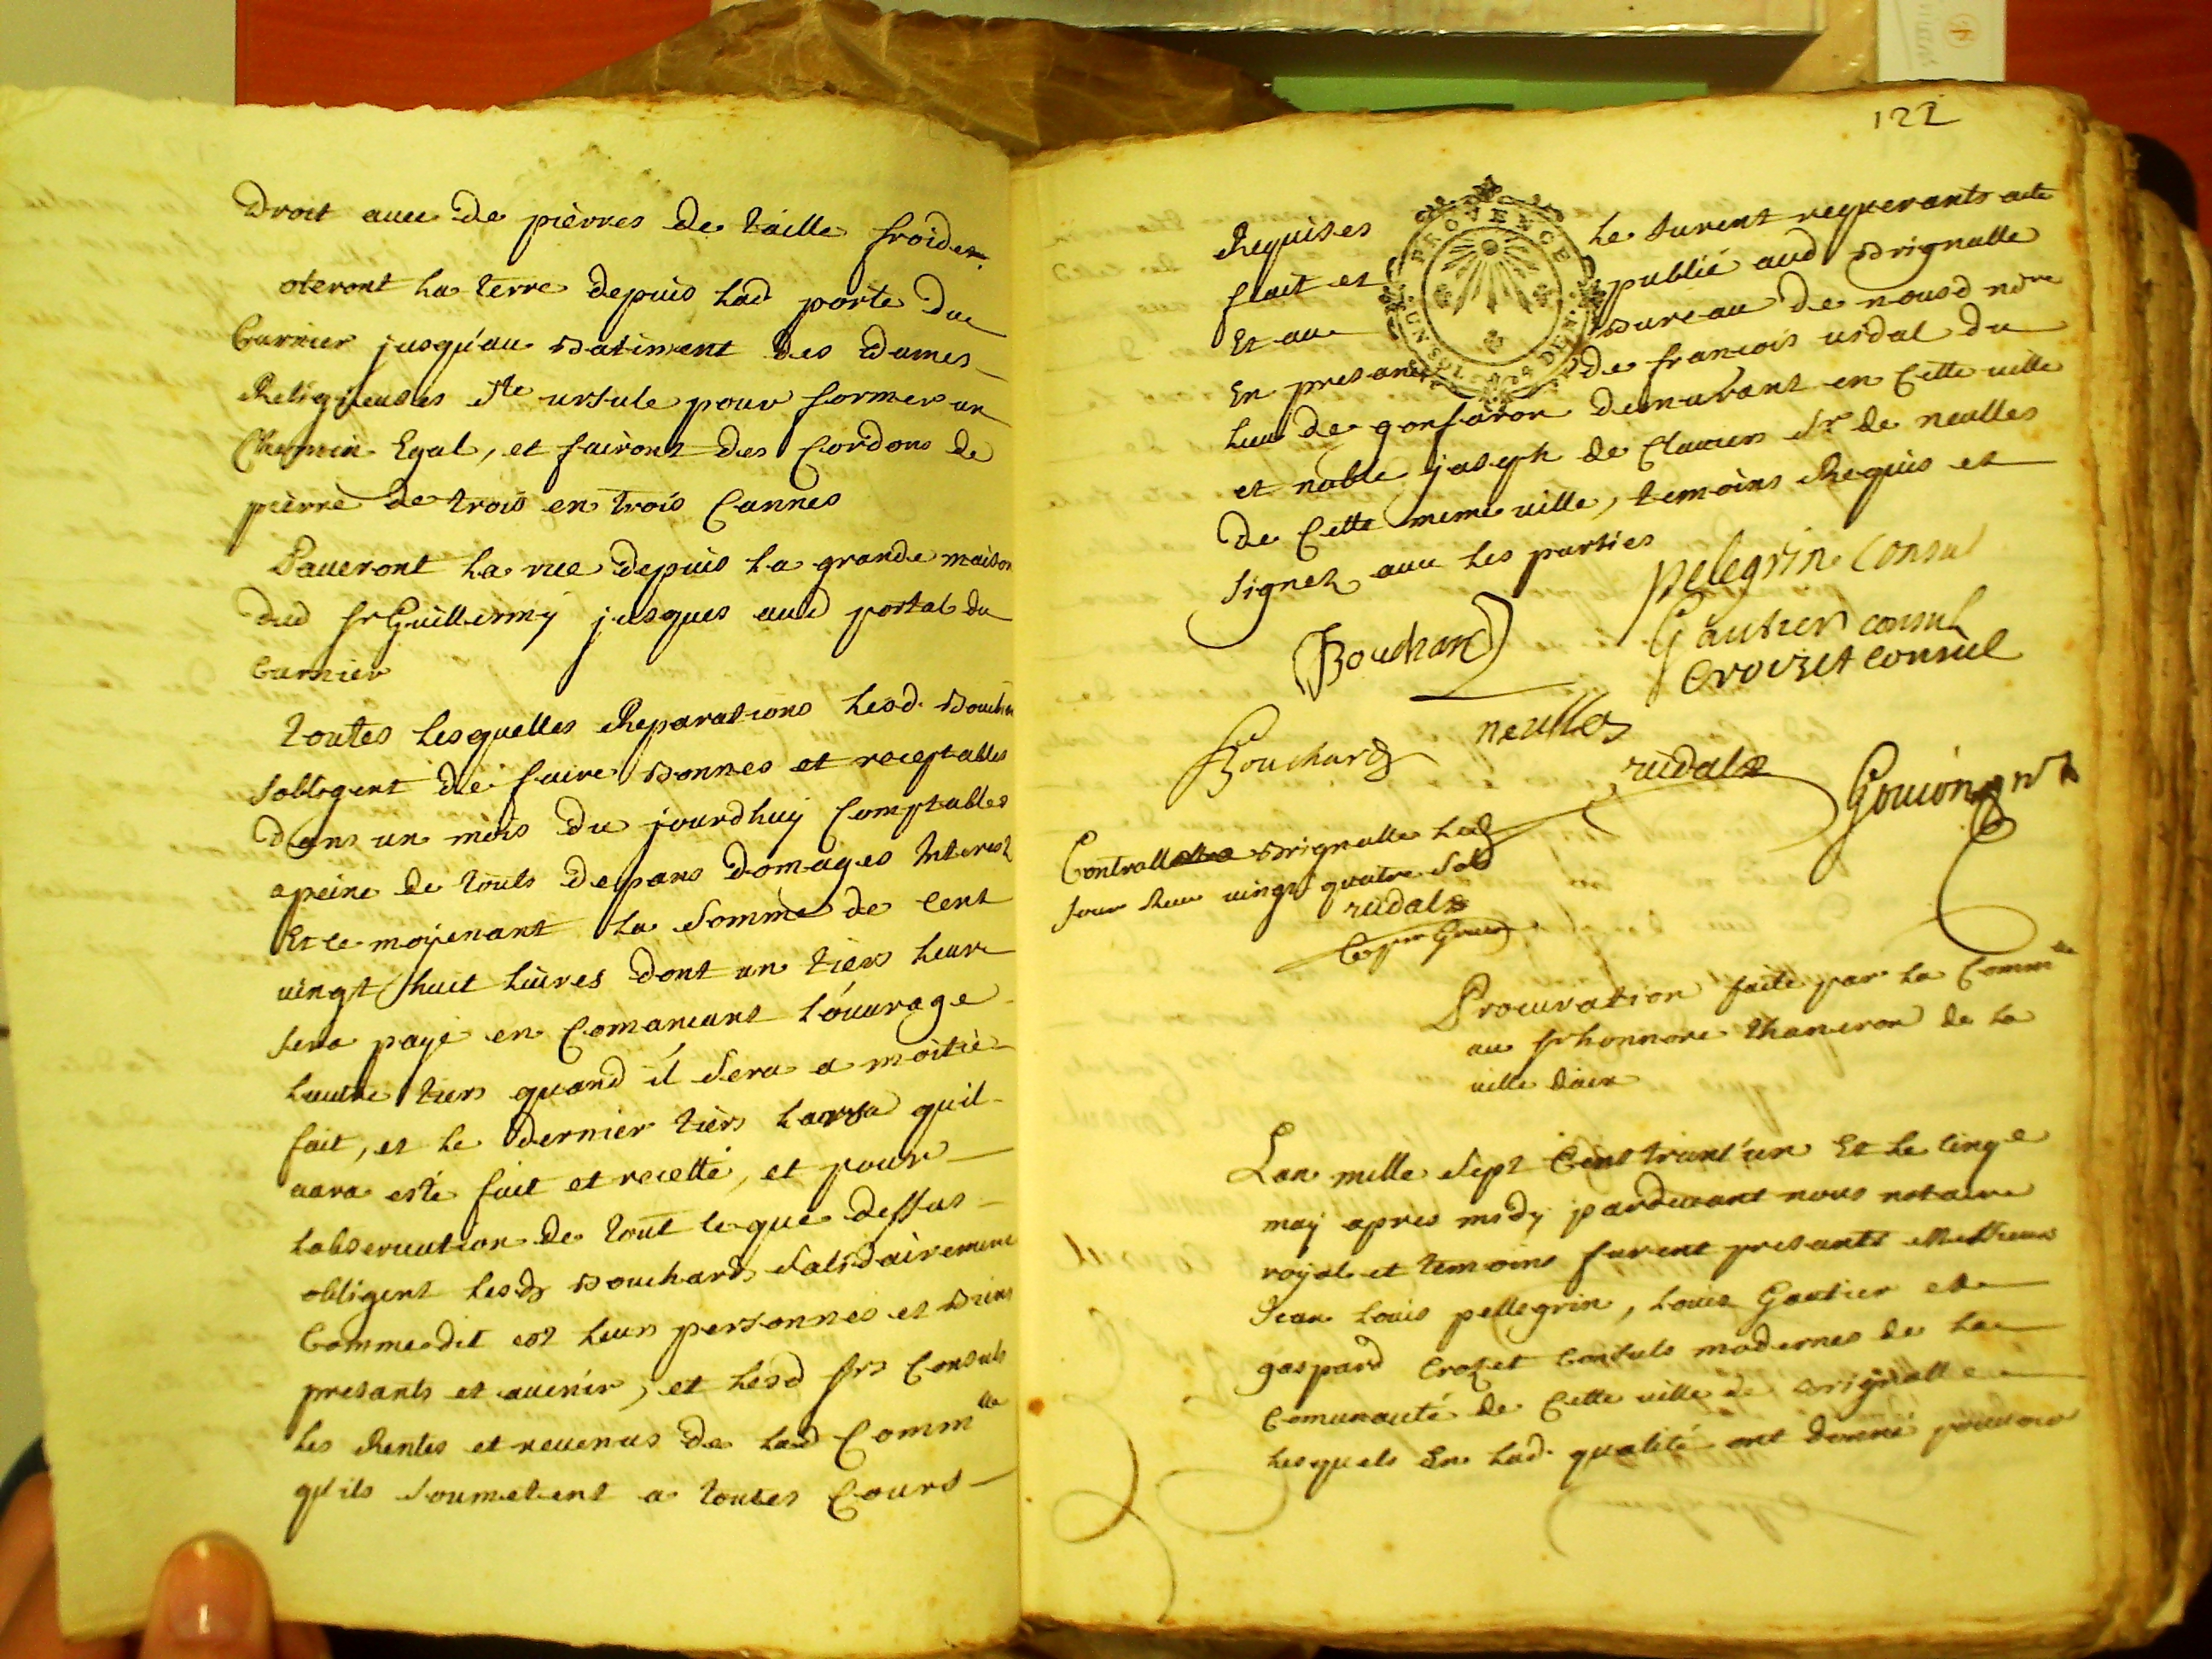 droit avec de pièrres de taille froides
oteront la terre depuis lad porte du
Carnier jusqu'au batiment des dames
Religieuses ste ursule pour former un
Chemin Egal, et fairont des Cordons de
pièrre de trois en trois Cannes
Paveront la rue depuis la grande maison
dud sr Guillermy jusques aud portal du
Carnier
toutes lesquelles Reparations lesd. Bouchard
sobligent de faire bonnes et receptables
dans un mois du jourdhuy Comptables
apeine de touts depans domages Interest
Et ce moyenant la somme de cent
vingt huit livres dont un tiers leur
sera payé en Comancant l'ouvrage
lautre tiers quand il sera a moitié
fait, et le dernier tièrs lorsq quil
aura esté fait et recetté, et pour
lobservation de tout ce que dessus
obligent lesd Bouchards solidairement
Comme dit est leurs personnes et biens
presants et avenir, et lesd srs Consuls
les Rentes et revenus de lad Commté
qu'ils soumetent a toutes Cours
122
Requises le Jurent requerants acte
fait et publié aud Brignolle
Et au Bureau de nousd nore
En presance de francois usdal du
lieu de gonfaron demurant en Cette ville
et noble joseph de Claviers sr de neulles
de Cette meme ville, temoins Requis et
signez avec les parties
PROVENCE
UN SOL DEN.
pelegrin Consul
Bouchard
Gautier consul
Crouzet Consul
neulles
Bouchard
rudal
Goujon nre
Controllé a Brignolle led
jour Receu vingt quatre sols
rudal
Procuration faite par la Commté
au sr honnore Thaneron de la
ville daix
Lan mille sept Cent trent'un Et le cinqe
may apres midy pardevant nous notaire
royal et temoins furent presants Messieurs
Jean Louis pellegrin, Louis Gautier et
gaspard Crozet Consuls modernes de la
Comunauté de Cette ville de Brignolle
lesquels En lad. qualité ont donné pouvoir